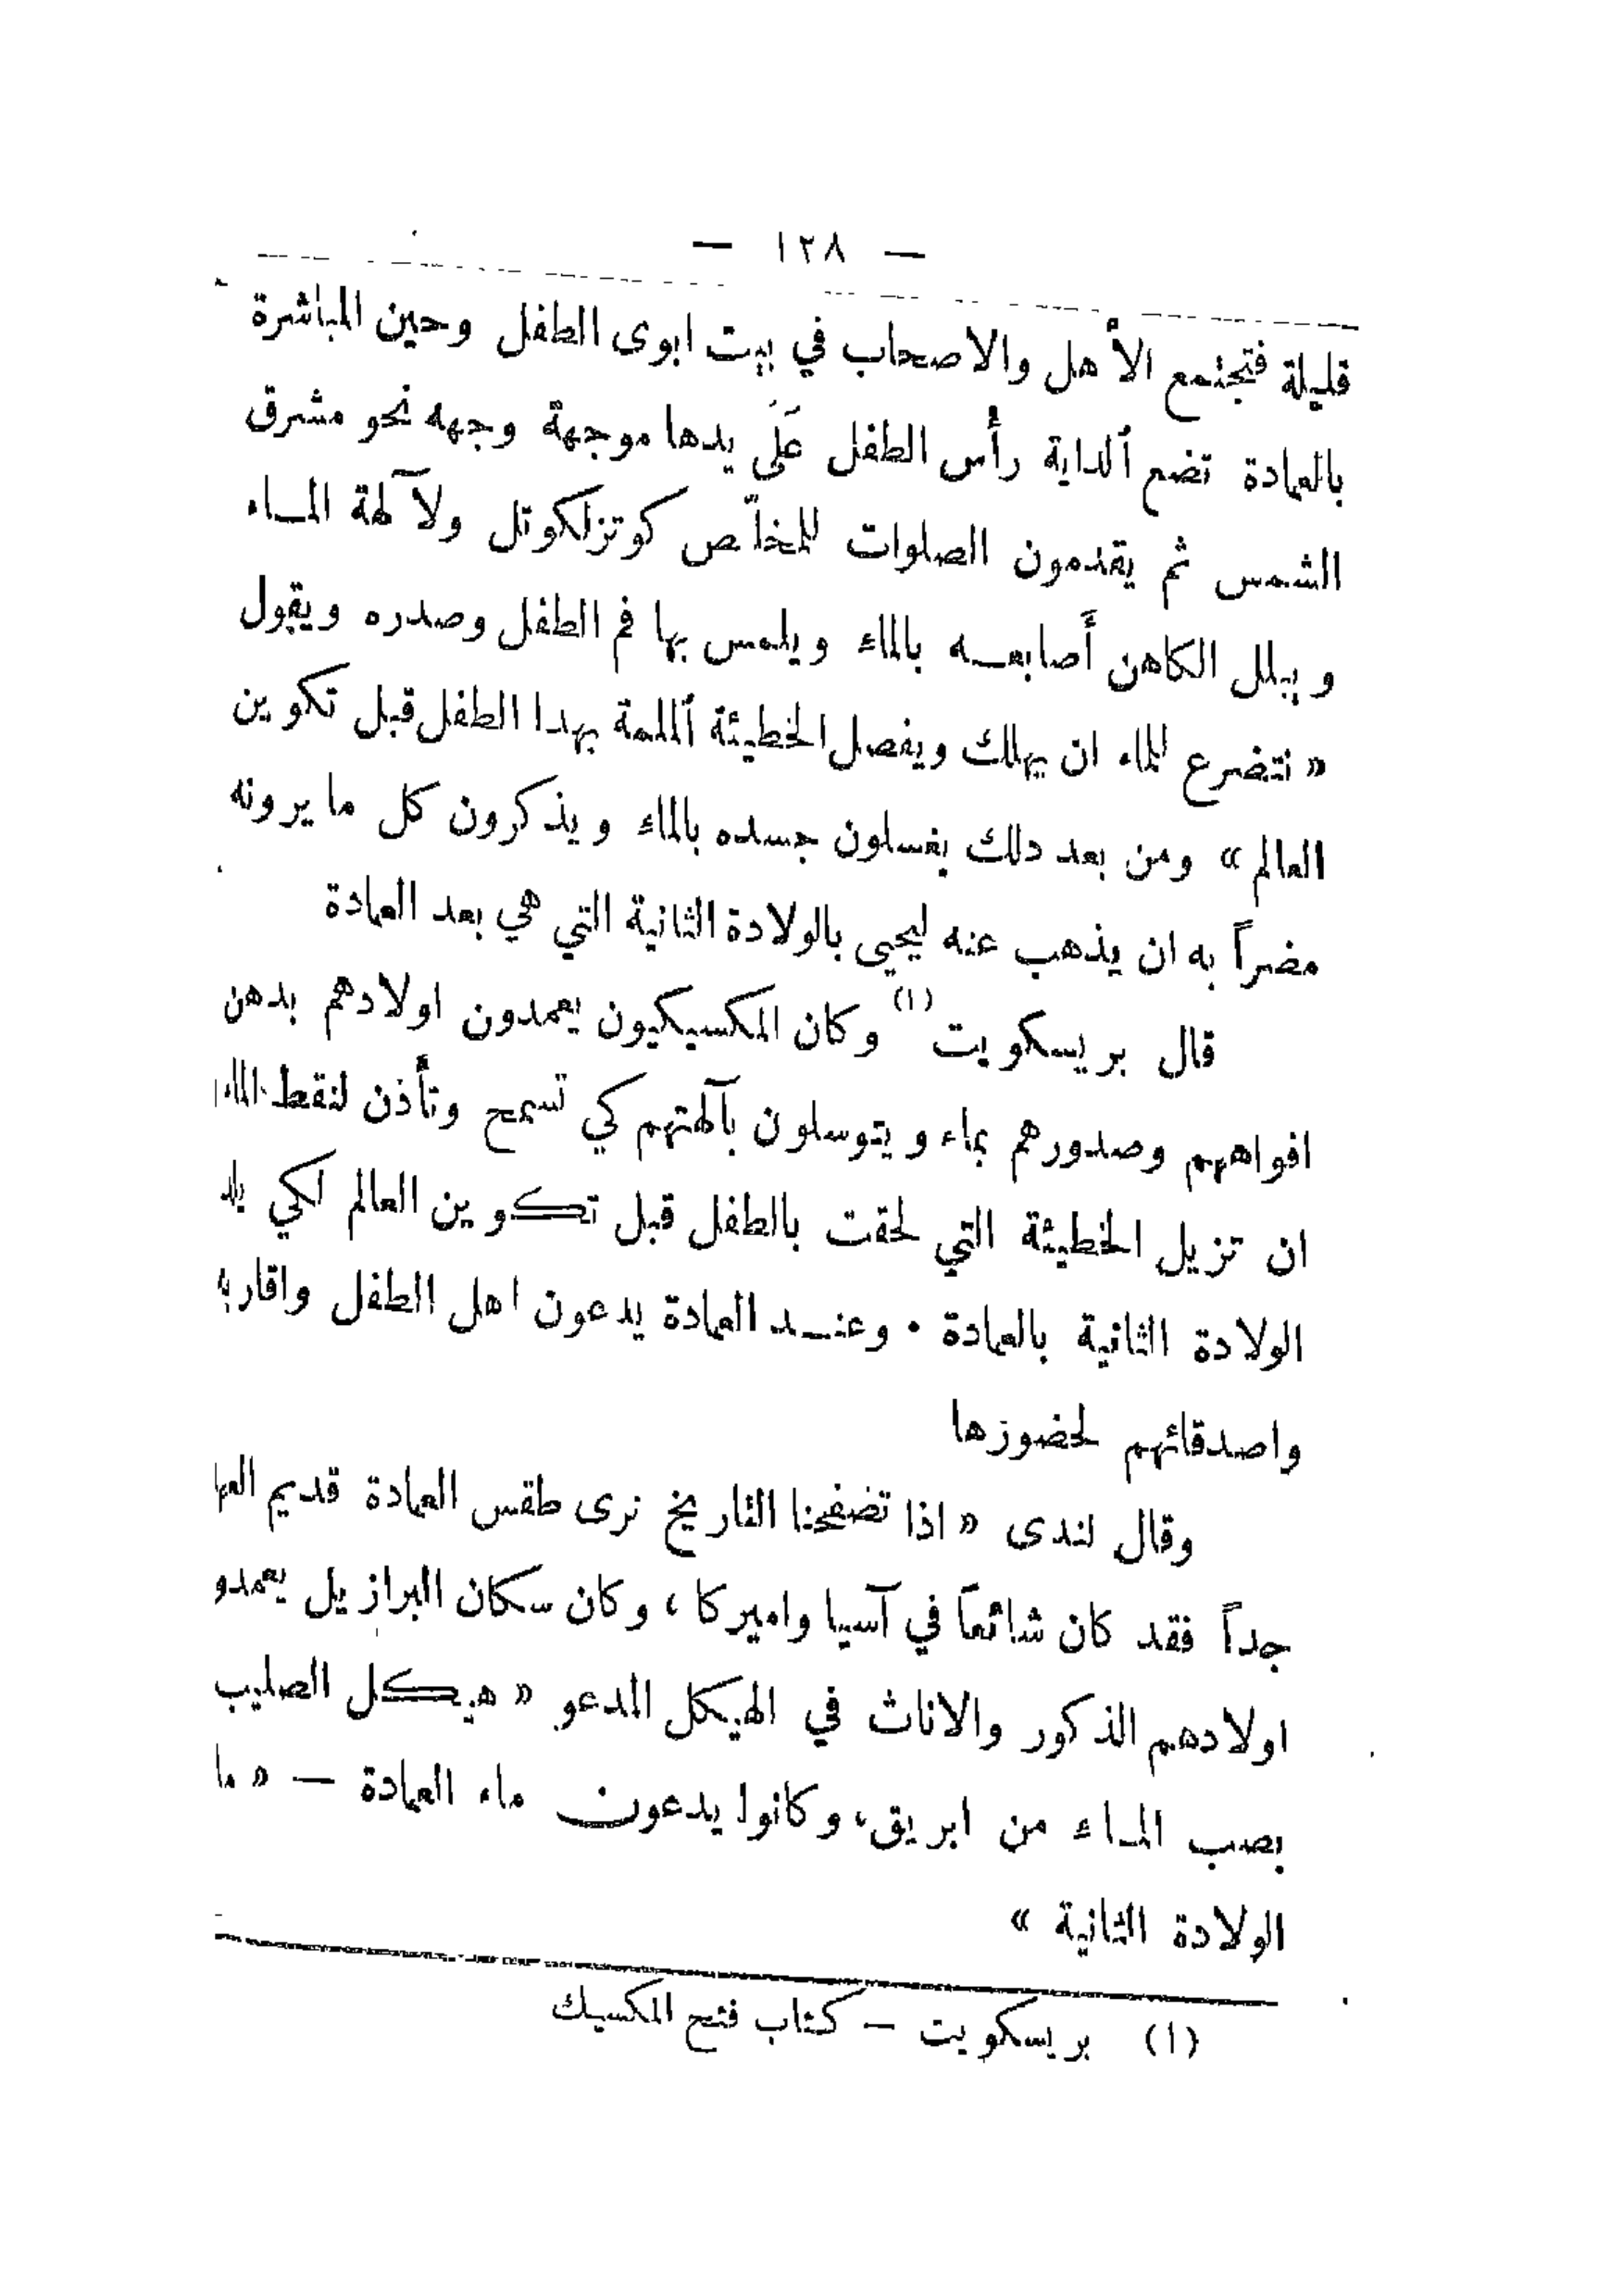 — ١٢٨ —
قليلة فتجتمع الأهل والاصحاب في بيت ابوى الطفل وحين المباشرة
بالعمادة تضع ٱلداية رأس الطفل عَلَى يدها موجهة وجهه نحو مشرق
الشمس ثم يقدمون الصلوات للمخلّص كوتزلكوتل ولآلهة المـاء
ويبلل الكاهن أصابعـه بالماء ويلمس بها فم الطفل وصدره ويقول
« نتضرع للماء ان يهلك ويفصل الخطيئة ٱلملمة بهدا الطفل قبل تكوين
العالم » ومن بعد دلك يغسلون جسده بالماء ويذكرون كل ما يرونه
مضراً به ان يذهب عنه ليحيى بالولادة الثانية التي هي بعد العمادة
قال بريسكويت (١) وكان المكسيكيون يعمدون اولادهم بدهن
افواههم وصدورهم بماء ويتوسلون بآلهتهم كي تسمح وتأذن لنقط الماء
ان تزيل الخطيئة التي لحقت بالطفل قبل تكوين العالم لكي
الولادة الثانية بالعمادة . وعنـد العمادة يدعون اهل الطفل
واصدقائهم لحضورها
وقال لندى « اذا تصفحنا التاريخ نرى طقس العمادة قديم
جداً فقد كان شائعاً في آسيا واميركا ، وكان سكان البرازيل يعمدو
اولادهم الذكور والاناث في الهيكل المدعو « هيكل الصليب
بصب المـاء من ابريق، وكانوا يدعون ماء العمادة — « ما
الولادة الثانية »
(١) بريسكويت — كتاب فتح المكسيك